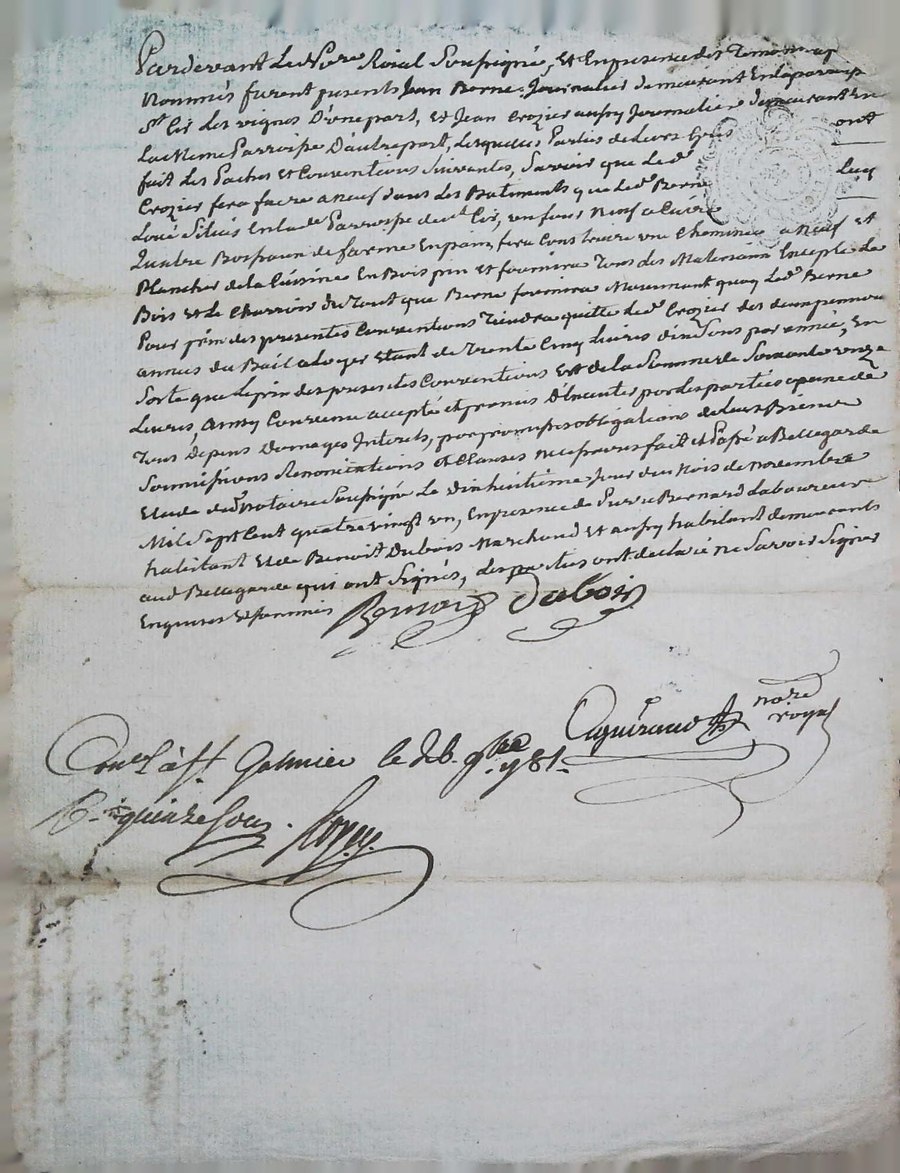 Pardevant Le No.re Roial Soussigné, Et En presence des Temoins
Nommés furent presents Jean Berne Journalier demeurant En la paroisse
St Cir des vignes D'une part, Et Jean Crozier aussy Journalier demeurant En
La Meme Parroisse D'autre part, Lesquelles Parties de Leurs Gres ont
fait Les Paches Et Conventions Suivantes, Savoir que Led.
Crozier fera faire a neuf dans Les Batiments que Led. Berne Luy
Loué Situés En lad. Parroisse de St Cir, un four Neuf a Cuire
quatre de farine En pain, fera Construire une Cheminée a Neuf Et
Plancher de la Cuisine En Bois pin et fournira Tous Les Materiaux Excepté Le
Bois Et Le Charroir du Tout que Berne fournira Moienant quoy Led. Berne
Pour prix des presentes Conventions Tiendra quitte Led. Crozier des
annés du Bail a Loyer Etant de Trente Cinq Livres dix Sous par année, En
Sorte que Le prix des presentes Conventions Est de la Somme de Soixante onze
Livres, Ainsy Convenu accepté et promis D'Executer par Les parties a peine de
Tous Depens Domages Interets, par promesses obligations de Leurs Biens
Soumissions Renonciations Et Clauses necessaires fait et Passé a Bellegarde
Etude du Notaire Soussigné Le Dixhuitième Jour du Mois de Novembre
Mil Sept Cent quatre vingt un, En presence de Pierre Bernard Laboureur
habitant Et de Benoit Dubois Marchand Et aussy habitant demeurants
aud Bellegarde qui ont Signés, Les parties ont declaré ne Savoir Signer
Enquises Et sommés
Bernard Dubois
no.re
royal
Con.lé à St Galmier le 26. 9bre 1781.
R. quinze Sous.